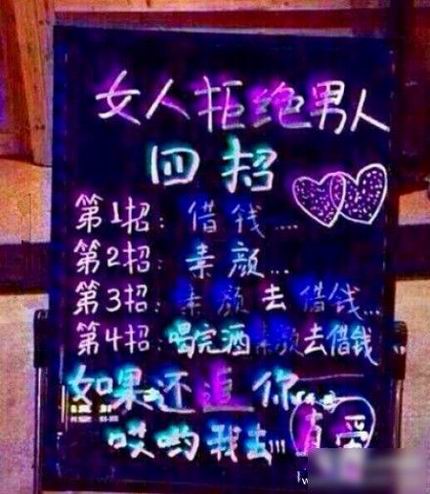 女人拒绝男人
四招
第1招：借钱...
第2招：素颜...
第3招：素颜去借钱...
第4招：喝完酒素颜去借钱...
如果还追你
哎哟我去!!!真爱